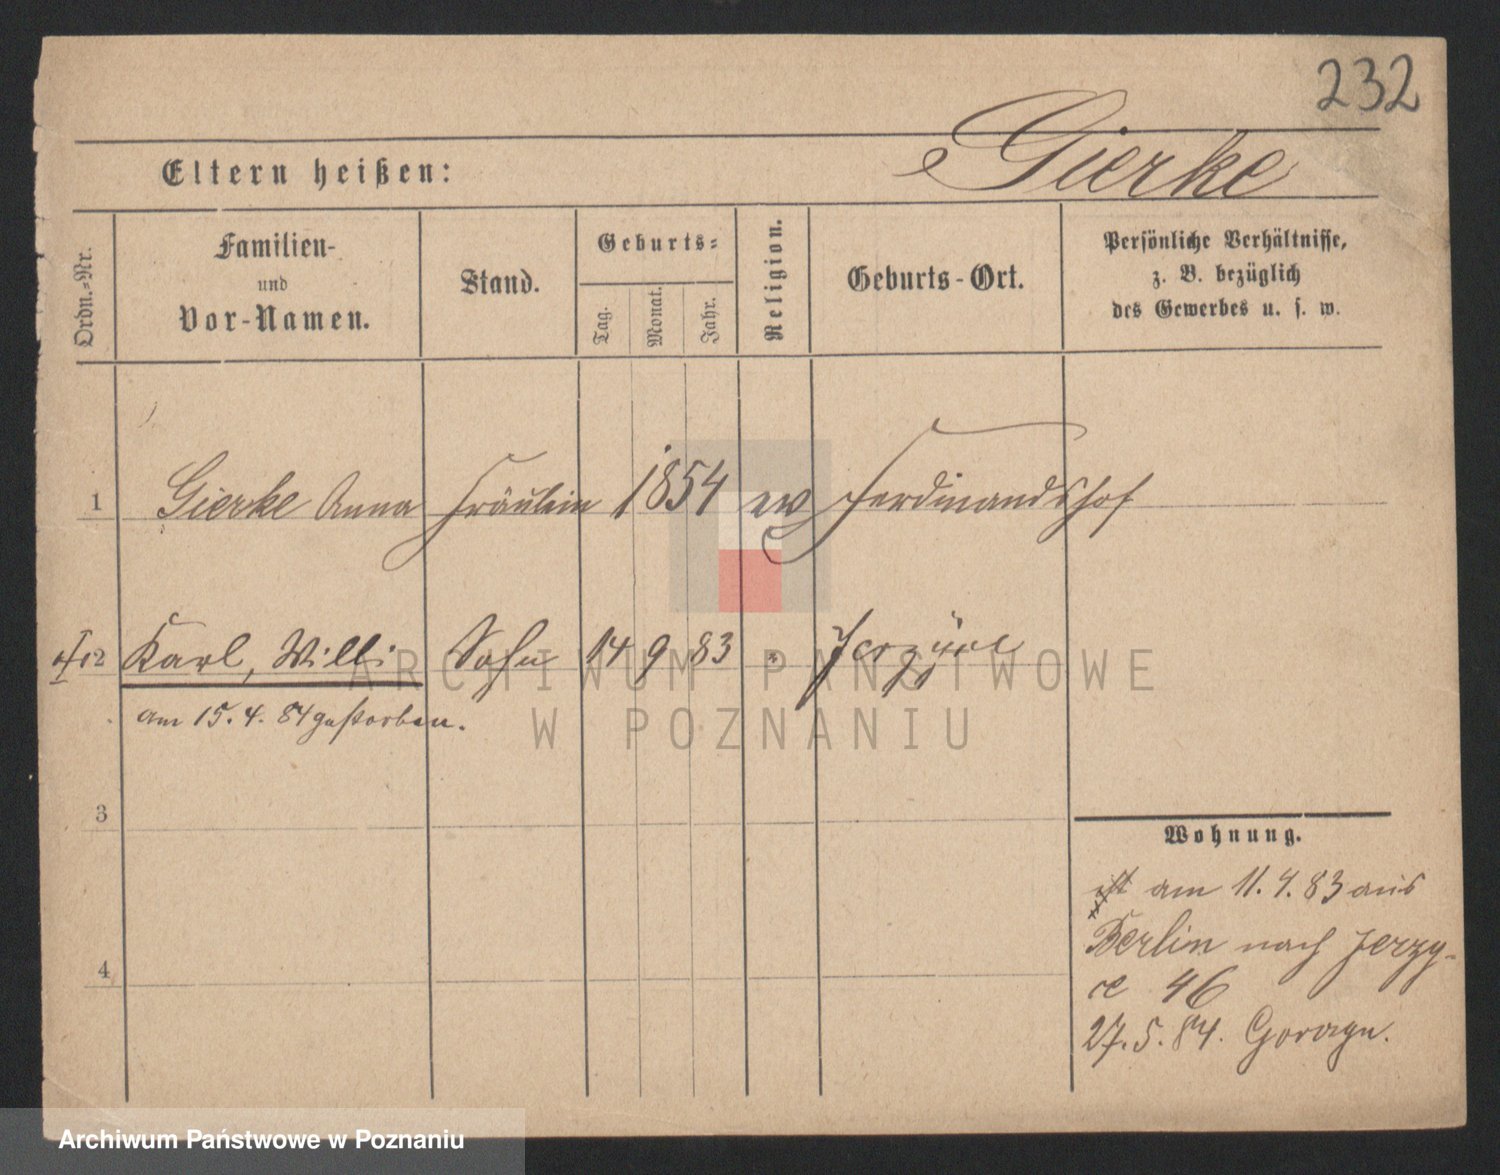 232
Eltern heißen: Gierke
Ordn.-Nr. Familien- und Vor-Namen. Stand. Geburts: Tag. Monat. Jahr. Religion. Geburts-Ort. Persönliche Verhältnisse, z. B. bezüglich des Gewerbes u. s. w.
1 Gierke Anna Fräulein 1854 ev Ferdinandshof
2 Karl, Willi Sohn 14 9 83 " Jerzyce
am 15. 4. 84 gestorben.
3
Wohnung.
ist am 11. 4. 83 aus
Berlin nach Jerzy-
ce 46
4
27. 5. 84.
ARCHIWUM PAŃSTWOWE
W POZNANIU
Archiwum Państwowe w Poznaniu